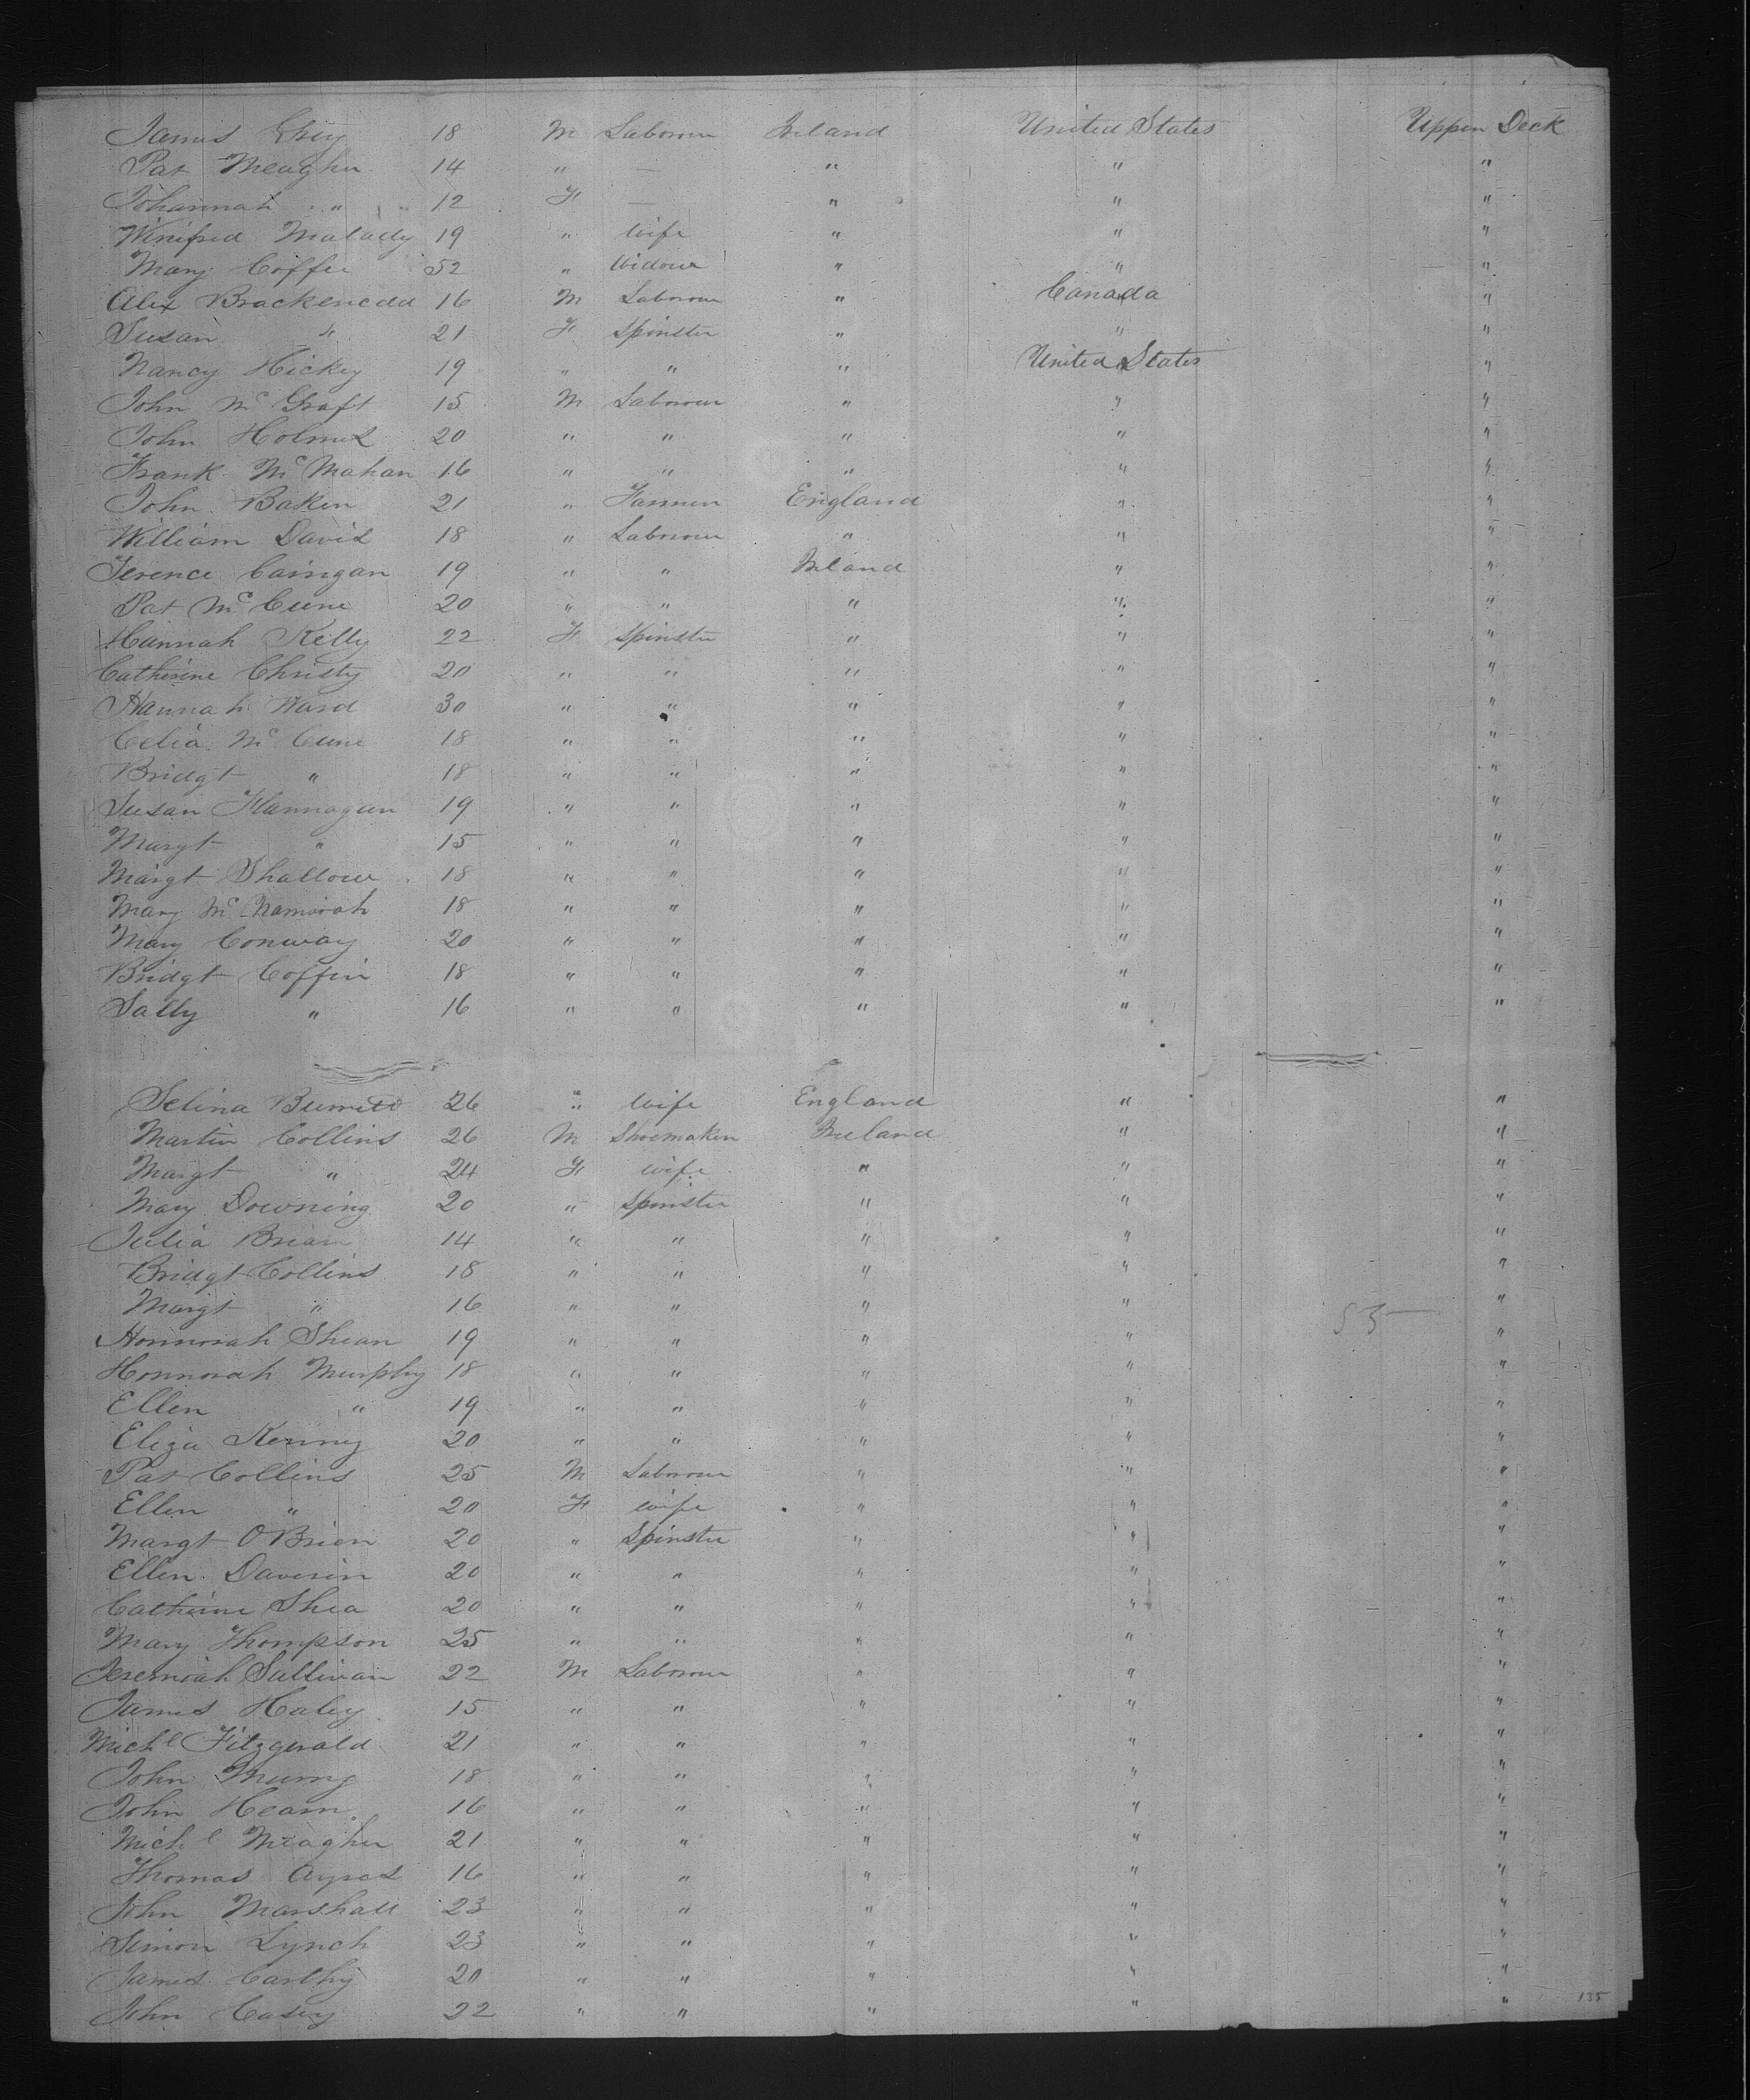 James Grey 18 M Laborour Ireland United States Upper Deck
Pat Meagher 14 " — " " "
Johannah " 12 F — " " "
Winifred Malady 19 " Wife " " "
Mary Coffee 52 " Widow " " "
Alex Brackenedd 16 M Laborour " Canada "
Susan " 21 F Spinster " " "
Nancy Hickey 19 " " " United States "
John Mc Graft 15 M Laborour " " "
John Holmes 20 " " " " "
Frank Mc Mahan 16 " " " " "
John Baker 21 " Farmer England " "
William David 18 " Laborour " " "
Terence Cairigan 19 " " Ireland " "
Pat Mc Cune 20 " " " " "
Hannah Kelly 22 F Spinster " " "
Catherine Christy 20 " " " " "
Hannah Ward 30 " " " " "
Celia Mc Cune 18 " " " " "
Bridgt " 18 " " " " "
Susan Flannagan 19 " " " " "
Margt " 15 " " " " "
Margt Shallow 18 " " " " "
Mary Mc Namorah 18 " " " " "
Mary Conway 20 " " " " "
Bridgt Coffin 18 " " " " "
Sally " 16 " " " " "
Selina 26 " Wife England " "
Martin Collins 26 M Shoemaker Ireland " "
Margt " 24 F Wife " " "
Mary Downing 20 " Spinster " " "
Julia Brian 14 " " " " "
Bridgt Collins 18 " " " " "
Margt " 16 " " " " "
Honnorah Shean 19 " " " " "
Honnorah Murphy 18 " " " " "
Ellen " 19 " " " " "
Eliza Kenny 20 " " " " "
Pat Collins 25 M Laborour " " "
Ellen " 20 F Wife " " "
Margt O Brien 20 " Spinster " " "
Ellen Daverin 20 " " " " "
Catherine Shea 20 " " " " "
Mary Thompson 25 " " " " "
Jeremiah Sullivan 22 M Laborour " " "
James Haley 15 " " " " "
Michl Fitzgerald 21 " " " " "
John 18 " " " " "
John Hearn 16 " " " " "
Michl Meagher 21 " " " " "
Thomas Ayres 16 " " " " "
John Marshall 23 " " " " "
Simon Lynch 23 " " " " "
James Carthy 20 " " " " "
John Casey 22 " " " " "
135